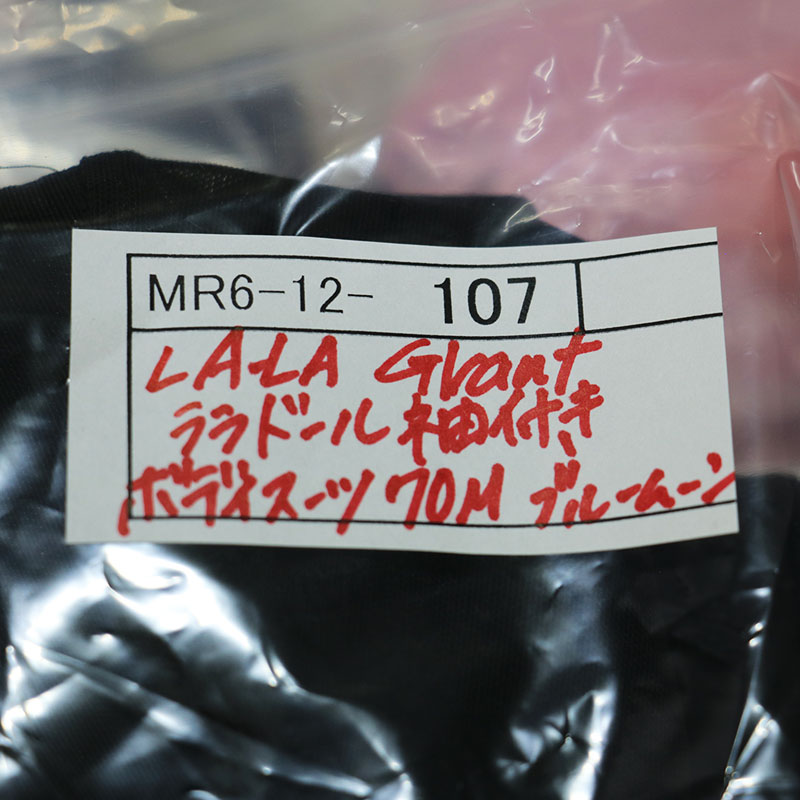 MR6-12- 107
LALA Grant
ララドール 袖付き
ボディスーツ 70M ブルームーン